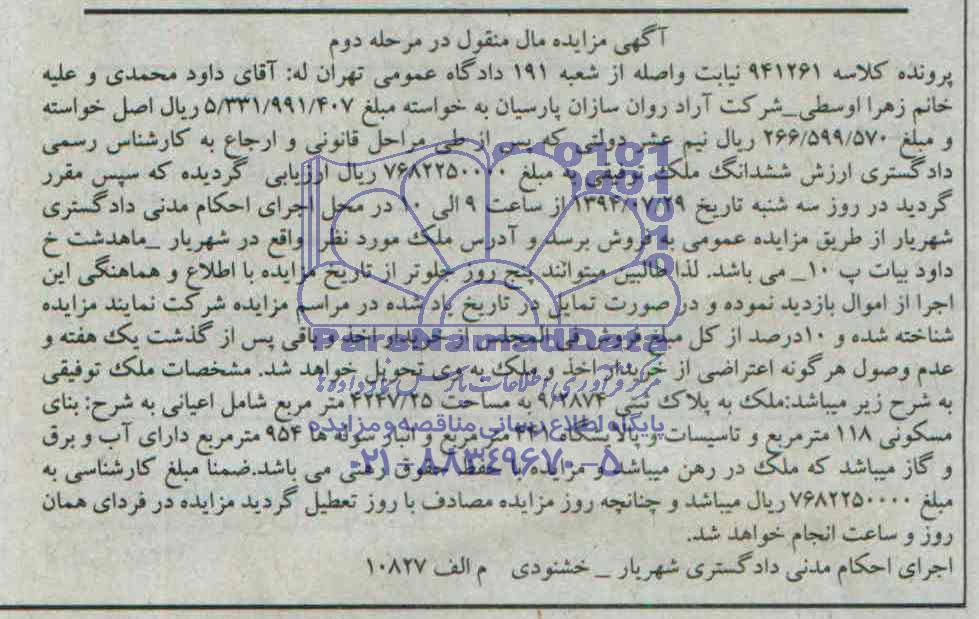 آگهی مزایده مال منقول در مرحله دوم
پرونده کلاسه ۹۴۱۲۶۱ نیابت واصله از شعبه ۱۹۱ دادگاه عمومی تهران له: آقای داود محمدی و علیه
خانم زهرا اوسطی_شرکت آراد روان سازان پارسیان به خواسته مبلغ ۵/۳۳۱/۹۹۱/۴۰۷ ریال اصل خواسته
و مبلغ ۲۶۶/۵۹۹/۵۷۰ ریال نیم عشر دولتی که پس از طی مراحل قانونی و ارجاع به کارشناس رسمی
دادگستری ارزش ششدانگ ملک توقیفی به مبلغ ۷۶۸۲۲۵۰۰۰۰ ریال ارزیابی گردیده که سپس مقرر
گردید در روز سه شنبه تاریخ ۱۳۹۴/۰۷/۲۹ از ساعت ۹ الی ۱۰ در محل اجرای احکام مدنی دادگستری
شهریار از طریق مزایده عمومی به فروش برسد و آدرس ملک مورد نظر واقع در شهریار _ماهدشت خ
داود بیات پ ۱۰_ می باشد. لذا طالبین میتوانند پنج روز جلوتر از تاریخ مزایده با اطلاع و هماهنگی این
اجرا از اموال بازدید نموده و در صورت تمایل در تاریخ یاد شده در مراسم مزایده شرکت نمایند مزایده
شناخته شده و ۱۰درصد از کل مبلغ فروش فی المجلس از خریدار اخذ و باقی پس از گذشت یک هفته و
عدم وصول هرگونه اعتراضی از خریدار اخذ و ملک به وی تحویل خواهد شد. مشخصات ملک توقیفی
به شرح زیر میباشد:ملک به پلاک ثبتی ۹/۲۸۷۴ به مساحت ۴۲۴۷/۲۵ متر مربع شامل اعیانی به شرح: بنای
مسکونی ۱۱۸ مترمربع و تاسیسات و پالایشگاه ۲۴۱ متر مربع و انبار سوله ها ۹۵۴ مترمربع دارای آب و برق
و گاز میباشد که ملک در رهن میباشد و مزایده با حفظ حقوق رهنی می باشد.ضمنا مبلغ کارشناسی به
مبلغ ۷۶۸۲۲۵۰۰۰۰ ریال میباشد و چنانچه روز مزایده مصادف با روز تعطیل گردید مزایده در فردای همان
روز و ساعت انجام خواهد شد.
اجرای احکام مدنی دادگستری شهریار _ خشنودی م الف ۱۰۸۲۷
ParsNamadData
پایگاه اطلاع رسانی مناقصه و مزایده
۰۲۱-۸۸۳۴۹۶۷۰-۵